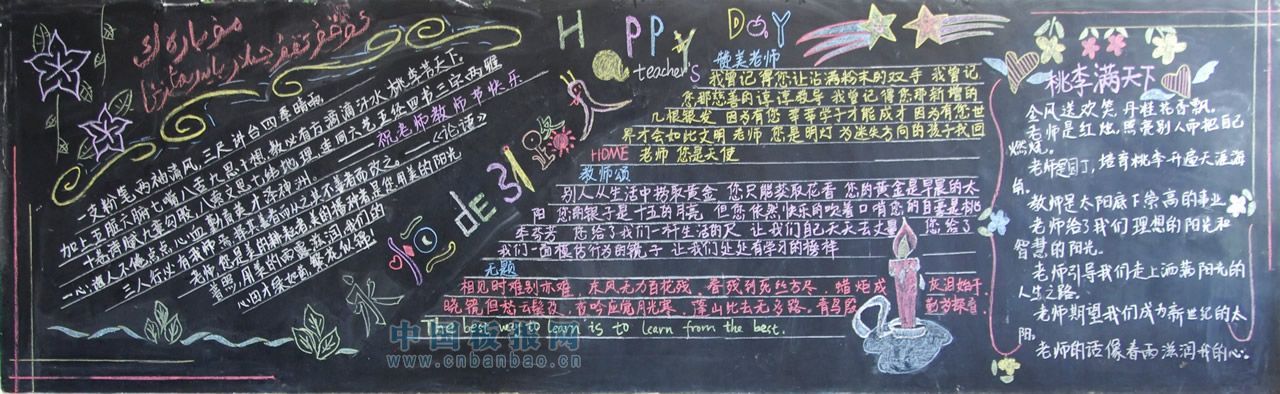 Happy DAY
teacher's
一支粉笔,两袖清风,三尺讲台四季晴雨,
加上五脏六腑七嘴八舌九思十想,教必有方滴滴汗水 桃李芳天下。
十卷诗赋九章勾股 八索文思七纬地理,连同六艺五经四书三字两雅
一心:诲人不倦点点心血 勤育英才泽神洲。 祝老师教师节快乐
三人行必有我师焉,择其善者而从之,其不善者而改之。《论语》
老师,您是美的耕耘者美的播种者是您用美的阳光
普照,用美的雨露滋润,我们的
心田才绿如茵,繁花似锦!
赞美老师
我曾记得您让沾满粉末的双手 我曾记
您那慈善的谆谆教导 我曾记得您那新增的
几根银发 因为有您 莘莘学子才能成才 因为有您世
界才会如此文明 老师 您是明灯 为迷失方向的孩子找回
HOME 老师 您是天使
教师颂
别人从生活中捞取黄金 您只能获取花香 您的黄金是早晨的太
阳 您的银子是十五的月亮 但您依然快乐的吹着口哨 您的自豪是桃
李芬芳 您给了我们一杆生活的尺 让我们自己天天去丈量 您给了
我们一面模范行为的镜子 让我们处处有学习的榜样
无题
相见时难别亦难 东风无力百花残 春蚕到死丝方尽 蜡炬成灰泪始干
晓镜但愁云鬓改,夜吟应觉月光寒 蓬山此去无多路 青鸟殷勤为探看
The best way to learn is to learn from the best.
桃李满天下
金风送欢笑,丹桂花香飘。
老师是红烛,照亮别人而把自己
燃烧。
老师是园丁,培育桃李开遍天涯海
角。
教师是太阳底下崇高的事业
老师给了我们理想的阳光和
智慧的阳光。
老师引导我们走上洒满阳光的
人生之路。
老师期望我们成为新世纪的太
阳。
老师的话像春雨滋润我的心。
中国板报网
www.cnbanbao.cn